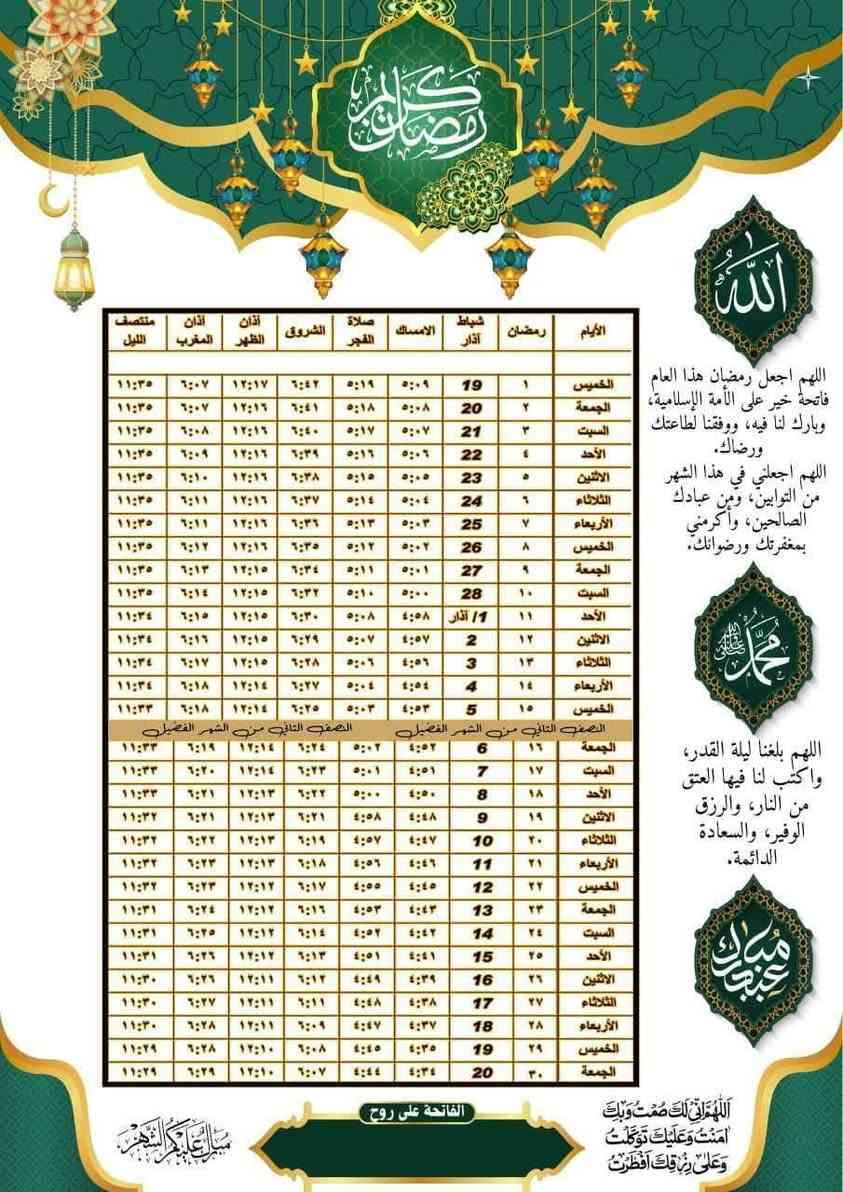 رمضان كريم
الله
اللهم اجعل رمضان هذا العام
فاتحة خير على الأمة الإسلامية،
وبارك لنا فيه، ووفقنا لطاعتك
ورضاك.
اللهم اجعلني في هذا الشهر
من التوابين، ومن عبادك
الصالحين، وأكرمني
بمغفرتك ورضوانك.
محمد ﷺ
اللهم بلغنا ليلة القدر،
واكتب لنا فيها العتق
من النار، والرزق
الوفير، والسعادة
الدائمة.
عيد مبارك
الأيام رمضان شباط آذار الامساك صلاة الفجر الشروق أذان الظهر أذان المغرب منتصف الليل
الخميس ١ 19 ٥:٠٩ ٥:١٩ ٦:٤٢ ١٢:١٧ ٦:٠٧ ١١:٣٥
الجمعة ٢ 20 ٥:٠٨ ٥:١٨ ٦:٤١ ١٢:١٦ ٦:٠٧ ١١:٣٥
السبت ٣ 21 ٥:٠٧ ٥:١٧ ٦:٤٠ ١٢:١٦ ٦:٠٨ ١١:٣٥
الأحد ٤ 22 ٥:٠٦ ٥:١٦ ٦:٣٩ ١٢:١٦ ٦:٠٩ ١١:٣٥
الاثنين ٥ 23 ٥:٠٥ ٥:١٥ ٦:٣٨ ١٢:١٦ ٦:١٠ ١١:٣٥
الثلاثاء ٦ 24 ٥:٠٤ ٥:١٤ ٦:٣٧ ١٢:١٦ ٦:١١ ١١:٣٥
الأربعاء ٧ 25 ٥:٠٣ ٥:١٣ ٦:٣٦ ١٢:١٦ ٦:١١ ١١:٣٥
الخميس ٨ 26 ٥:٠٢ ٥:١٢ ٦:٣٥ ١٢:١٦ ٦:١٢ ١١:٣٥
الجمعة ٩ 27 ٥:٠١ ٥:١١ ٦:٣٤ ١٢:١٥ ٦:١٣ ١١:٣٥
السبت ١٠ 28 ٥:٠٠ ٥:١٠ ٦:٣٢ ١٢:١٥ ٦:١٤ ١١:٣٥
الأحد ١١ 1/ آذار ٤:٥٨ ٥:٠٨ ٦:٣٠ ١٢:١٥ ٦:١٥ ١١:٣٤
الاثنين ١٢ 2 ٤:٥٧ ٥:٠٧ ٦:٢٩ ١٢:١٥ ٦:١٦ ١١:٣٤
الثلاثاء ١٣ 3 ٤:٥٦ ٥:٠٦ ٦:٢٨ ١٢:١٥ ٦:١٧ ١١:٣٤
الأربعاء ١٤ 4 ٤:٥٤ ٥:٠٤ ٦:٢٧ ١٢:١٤ ٦:١٨ ١١:٣٤
الخميس ١٥ 5 ٤:٥٣ ٥:٠٣ ٦:٢٥ ١٢:١٤ ٦:١٨ ١١:٣٣
النصف الثاني من الشهر الفضيل النصف الثاني من الشهر الفضيل
الجمعة ١٦ 6 ٤:٥٢ ٥:٠٢ ٦:٢٤ ١٢:١٤ ٦:١٩ ١١:٣٣
السبت ١٧ 7 ٤:٥١ ٥:٠١ ٦:٢٣ ١٢:١٤ ٦:٢٠ ١١:٣٣
الأحد ١٨ 8 ٤:٥٠ ٥:٠٠ ٦:٢٢ ١٢:١٣ ٦:٢١ ١١:٣٣
الاثنين ١٩ 9 ٤:٤٨ ٤:٥٨ ٦:٢١ ١٢:١٣ ٦:٢١ ١١:٣٢
الثلاثاء ٢٠ 10 ٤:٤٧ ٤:٥٧ ٦:١٩ ١٢:١٣ ٦:٢٢ ١١:٣٢
الأربعاء ٢١ 11 ٤:٤٦ ٤:٥٦ ٦:١٨ ١٢:١٣ ٦:٢٣ ١١:٣٢
الخميس ٢٢ 12 ٤:٤٥ ٤:٥٥ ٦:١٧ ١٢:١٢ ٦:٢٣ ١١:٣٢
الجمعة ٢٣ 13 ٤:٤٣ ٤:٥٣ ٦:١٦ ١٢:١٢ ٦:٢٤ ١١:٣١
السبت ٢٤ 14 ٤:٤٢ ٤:٥٢ ٦:١٤ ١٢:١٢ ٦:٢٥ ١١:٣١
الأحد ٢٥ 15 ٤:٤١ ٤:٥١ ٦:١٣ ١٢:١٢ ٦:٢٦ ١١:٣١
الاثنين ٢٦ 16 ٤:٣٩ ٤:٤٩ ٦:١٢ ١٢:١١ ٦:٢٦ ١١:٣٠
الثلاثاء ٢٧ 17 ٤:٣٨ ٤:٤٨ ٦:١١ ١٢:١١ ٦:٢٧ ١١:٣٠
الأربعاء ٢٨ 18 ٤:٣٧ ٤:٤٧ ٦:٠٩ ١٢:١١ ٦:٢٨ ١١:٣٠
الخميس ٢٩ 19 ٤:٣٥ ٤:٤٥ ٦:٠٨ ١٢:١٠ ٦:٢٨ ١١:٢٩
الجمعة ٣٠ 20 ٤:٣٤ ٤:٤٤ ٦:٠٧ ١٢:١٠ ٦:٢٩ ١١:٢٩
اللهم إني لك صمت وبك
امنت وعليك توكلت
وعلى رزقك أفطرت
الفاتحة على روح
مبارك عليكم الشهر